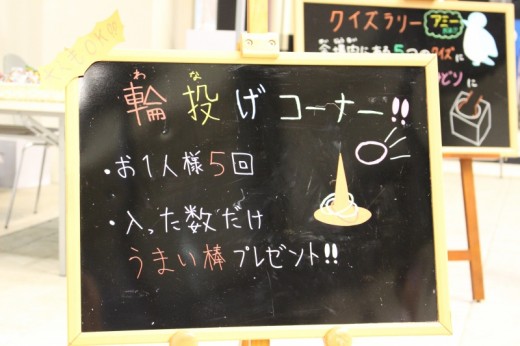 わ な
輪投げコーナー!!
・お1人様5回
・入った数だけ
うまい棒プレゼント!!
クイズラリー
会場内にある5つのクイズに